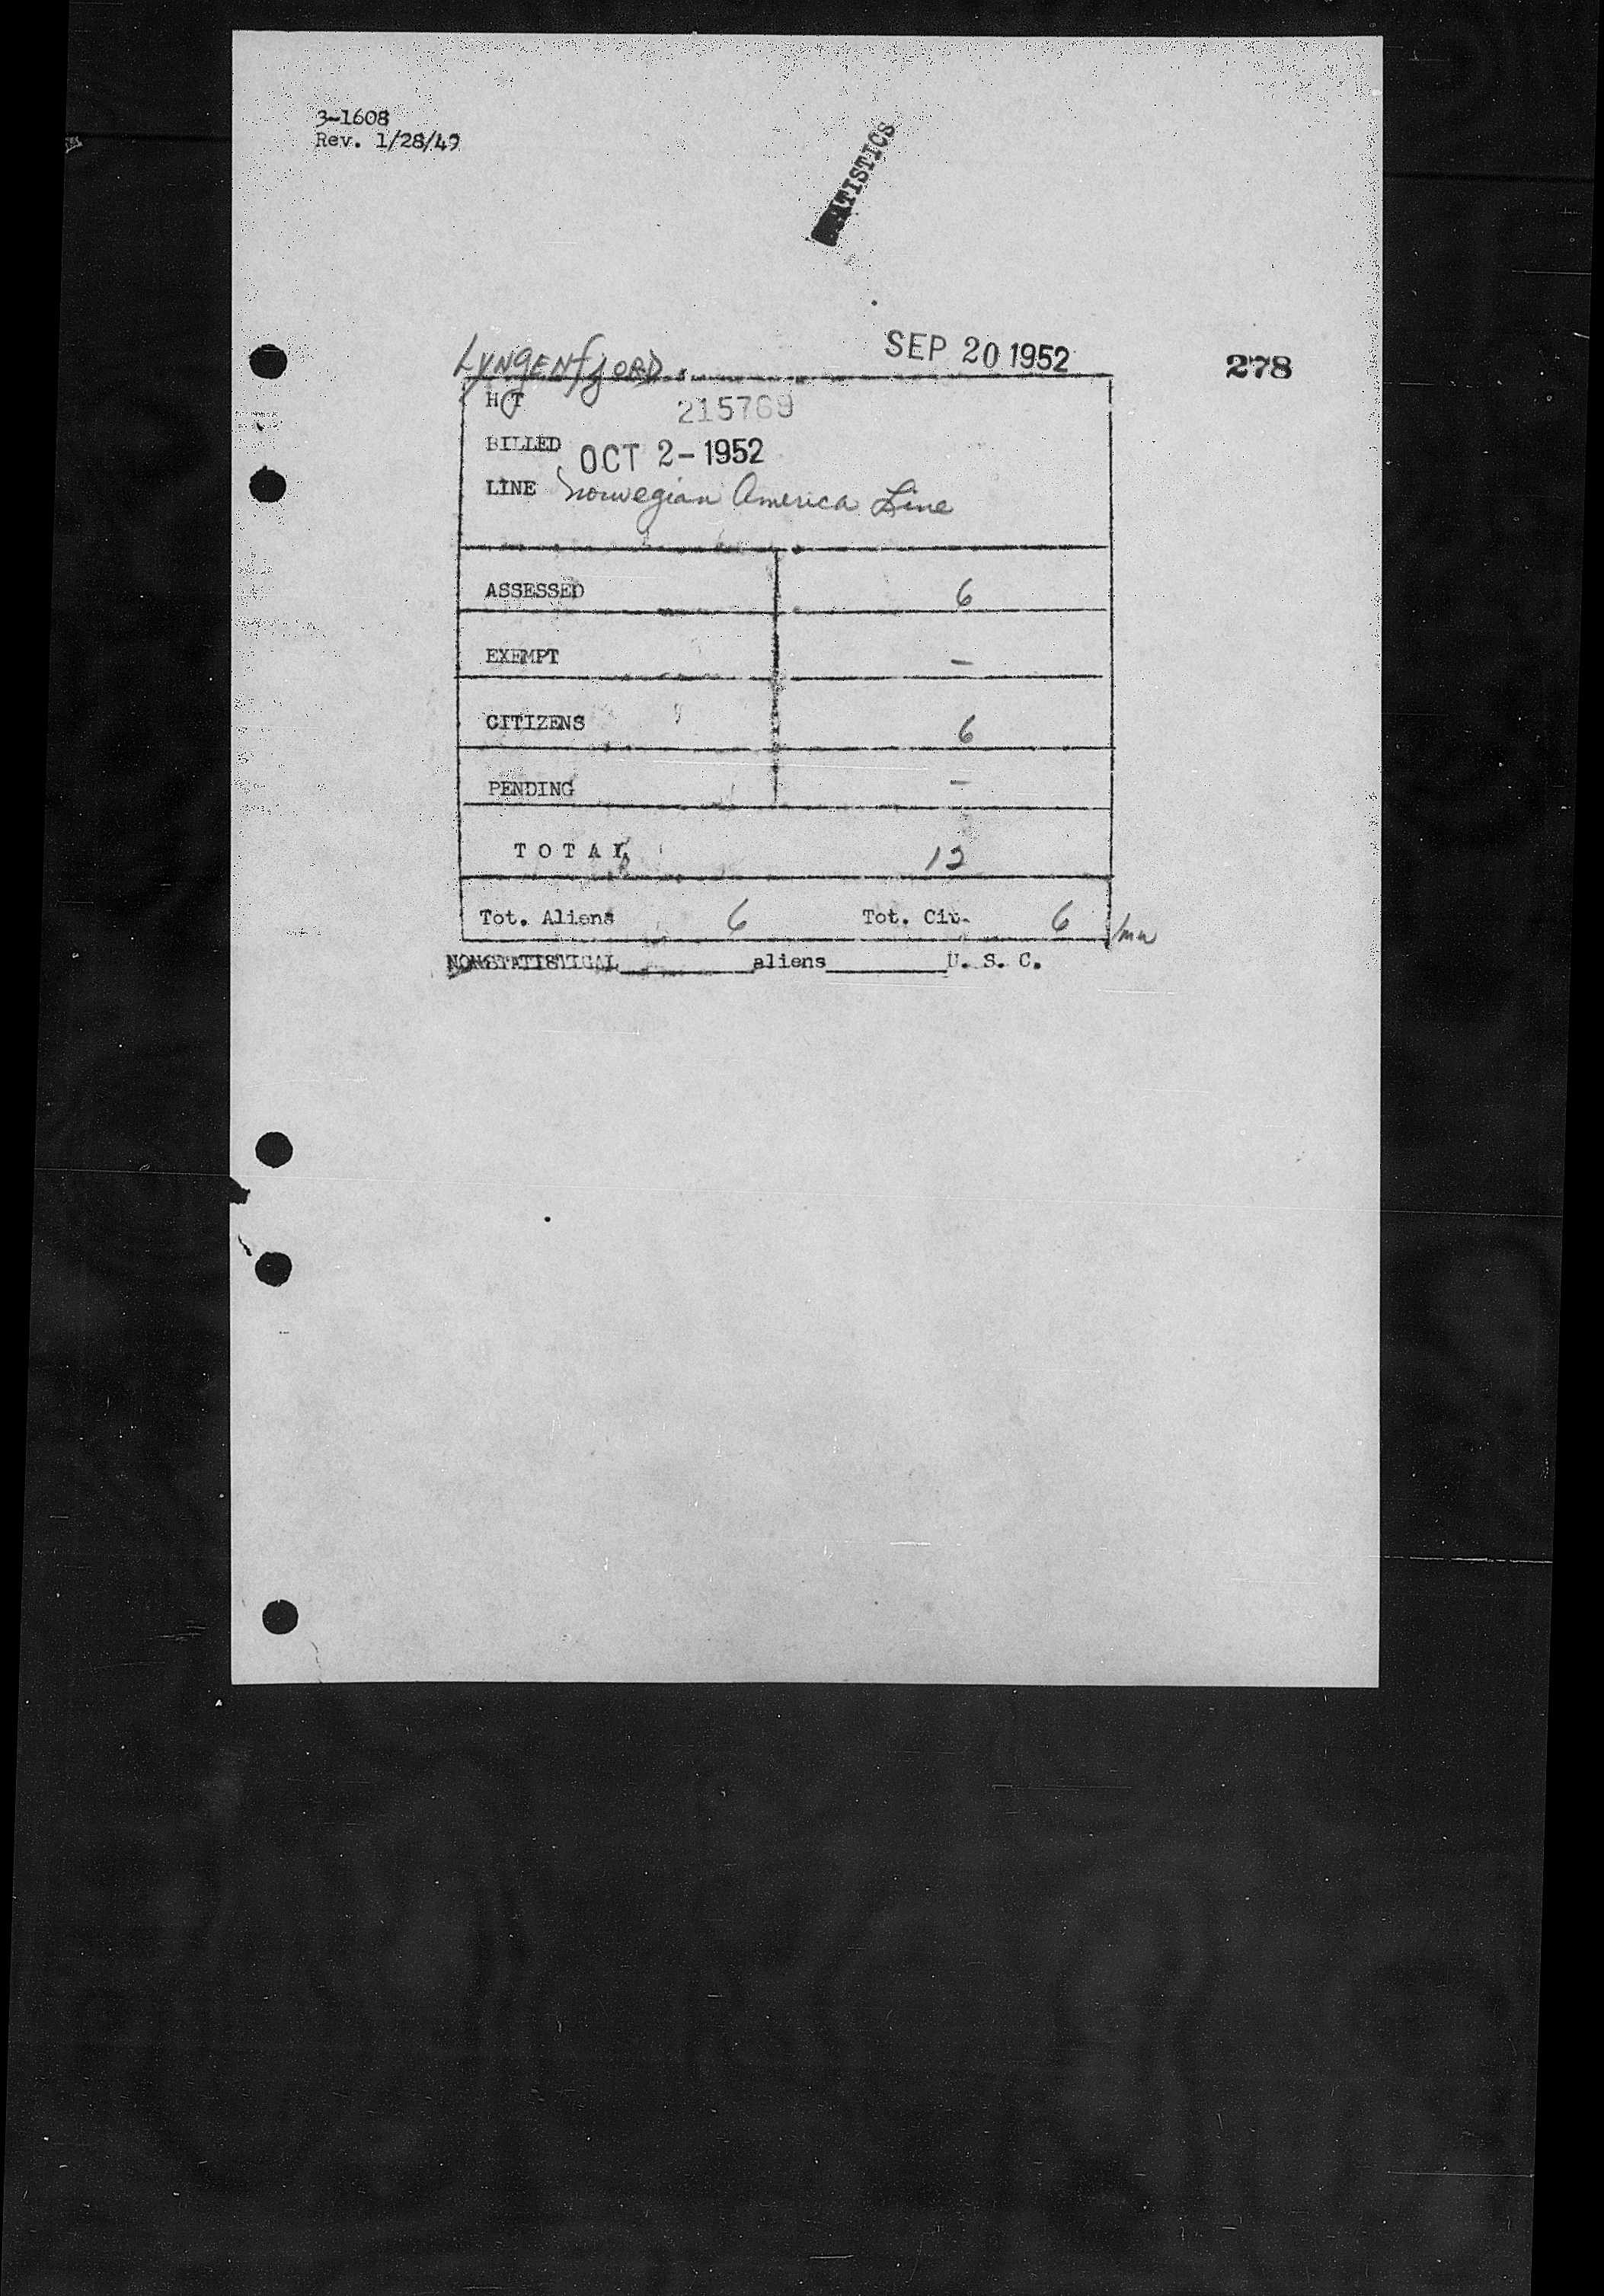 3-1608
Rev. 1/28/49
LYNGENFJORD
SEP 20 1952
278
H T
215769
BILLED OCT 2-1952
LINE Norwegian America Line
ASSESSED 6
EXEMPT –
CITIZENS 6
PENDING –
TOTAL 12
Tot. Aliens 6 Tot. Cit. 6
NONSTATISTICAL aliens U. S. C.